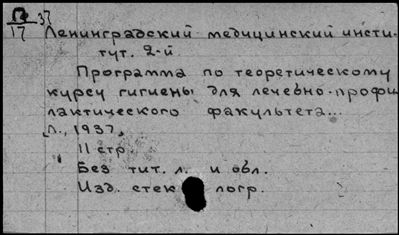 П 37
17
Ленинградский медицинский инсти-
тут. 2-й.
Программа по теоретическому
курсу гигиены для лечебно-профи
лактического факультета...
[Л., 1937,
11 стр.
Без тит. л. и обл.
Изд. стек логр.